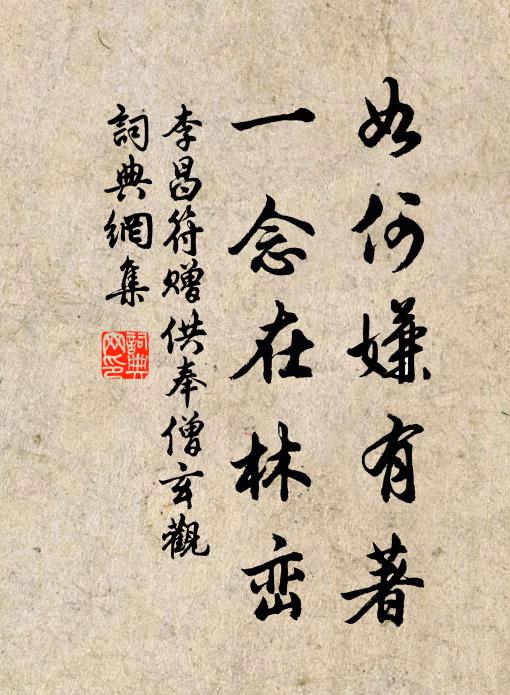 如何嫌有著
一念在林峦
李昌符赠供奉僧玄觀
詞典網集
詞典网印